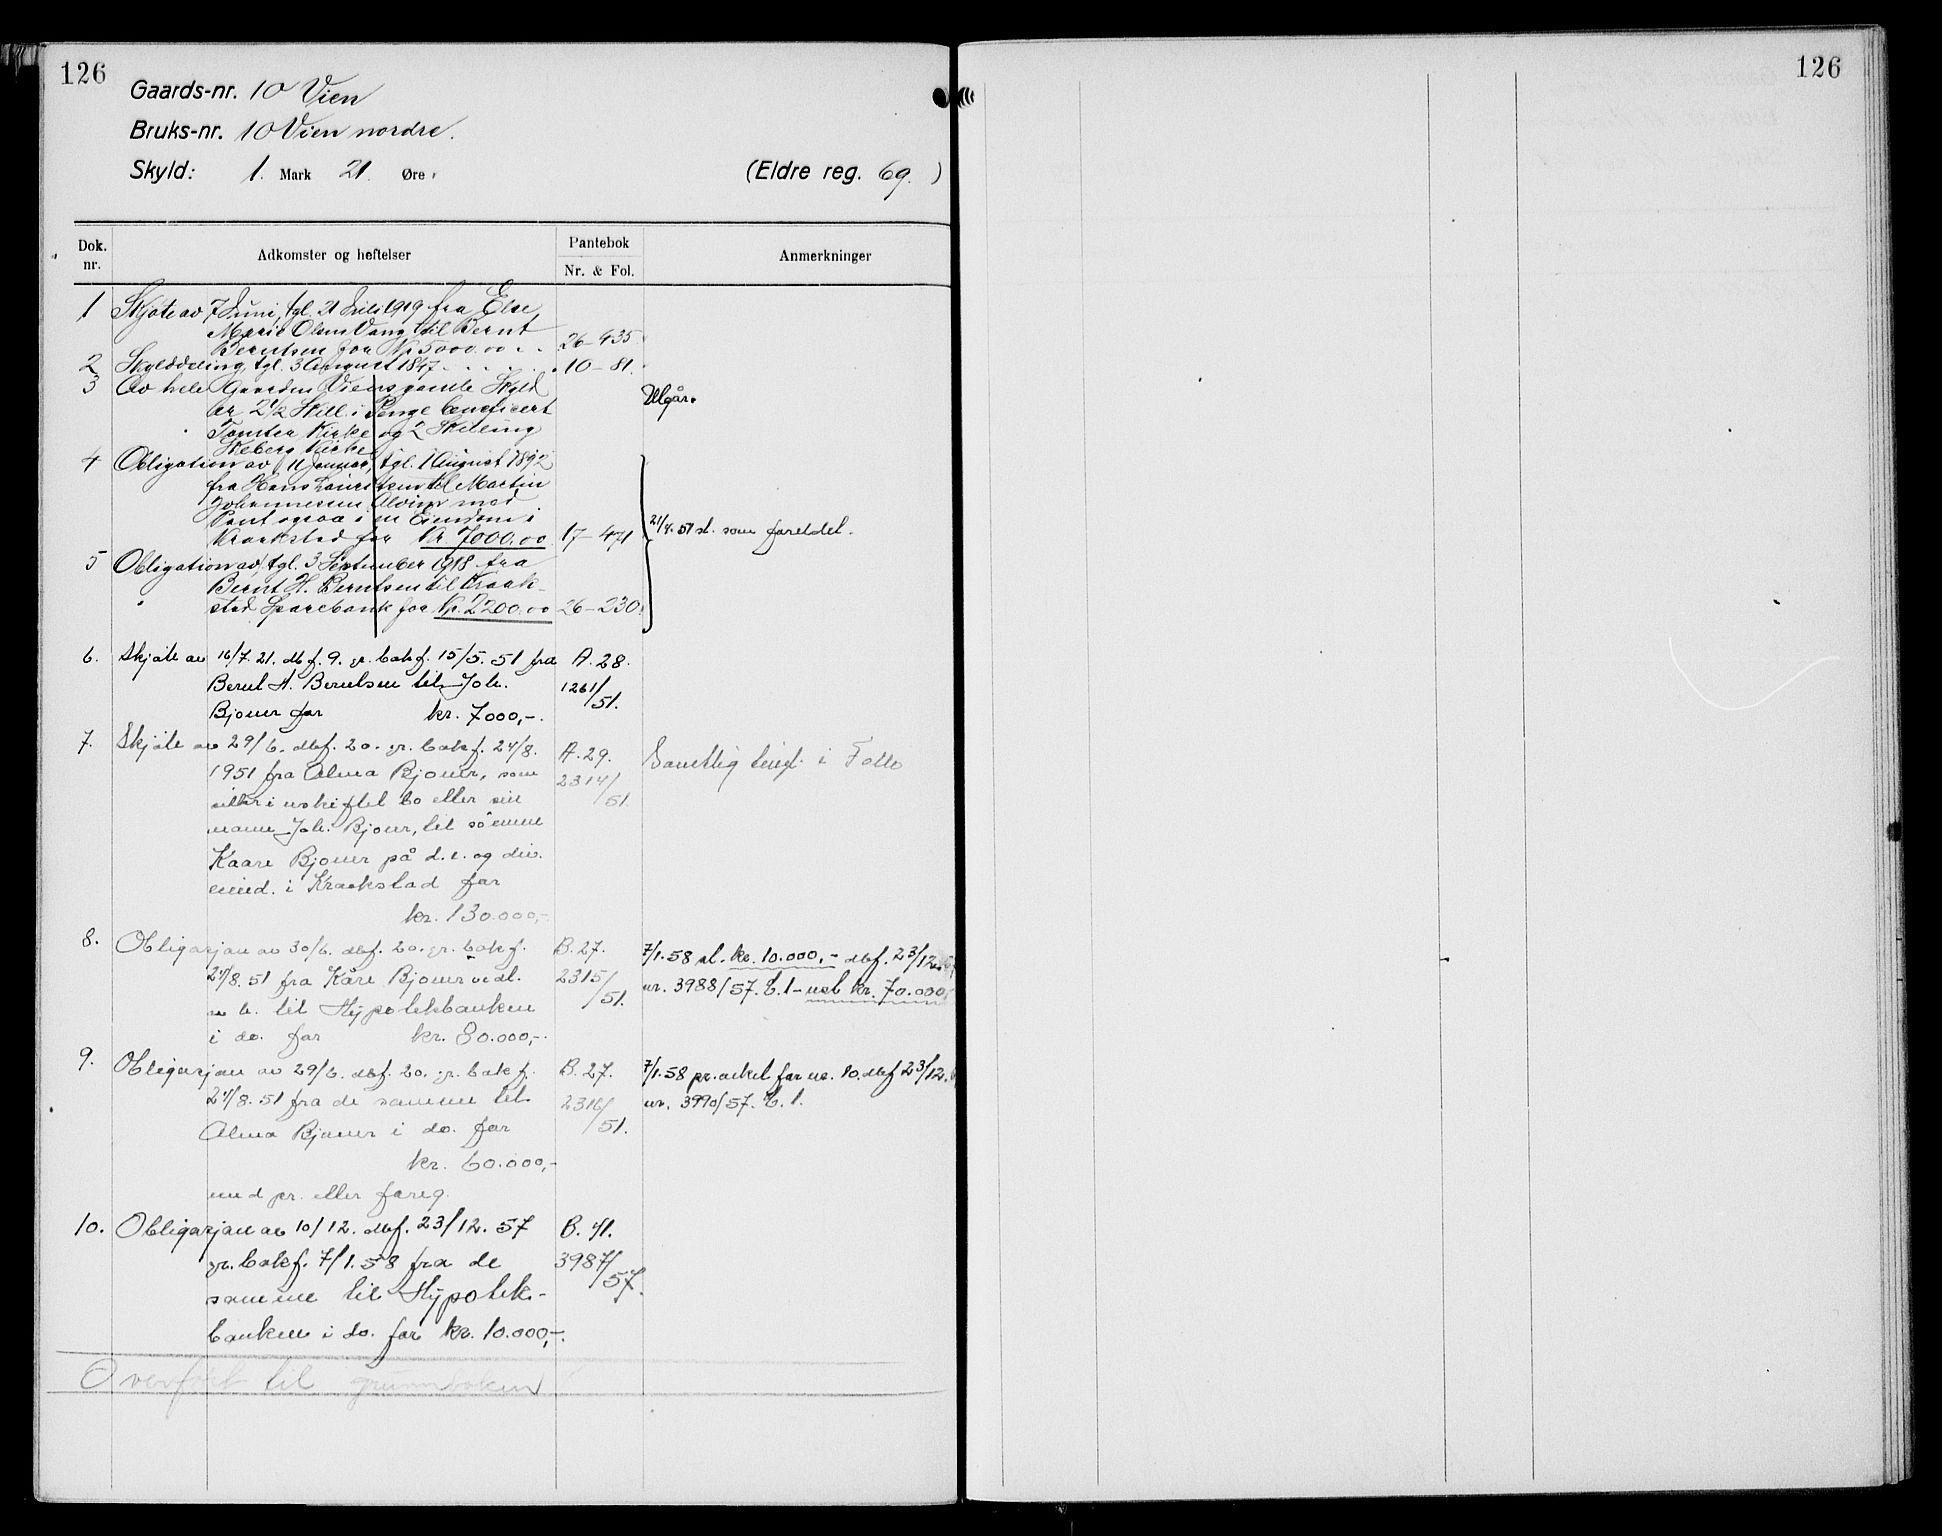 126
Gaards-nr. 10 Vien
Bruks-nr. 10 Vien nordre.
Skyld: 1. Mark 21. Øre.
(Eldre reg. 69.)
Dok. nr.
Adkomster og heftelser
Pantebok
Nr. & Fol.
Anmerkninger
1 Skjøte av 7 Juni, tgl. 21 Juli 1919 fra Else
Marie Olsen Vang til Bernt
Berntsen for Kr 5000.00 . . 26-435
2 Skylddeling, tgl. 3 August 1847 . . . . 10-81.
3 Av hele Gaarden Viens gamle Skyld
er 2 1/2 Skill. i Penge beneficert
Tomter Kirke og 2 Skilling
Skeberg Kirke
Utgår.
4 Obligation av 11 Januar, tgl. 1 August 1892
fra Hans Lauritsen til Martin
Johannessen med
Pant ogsaa i en Eiendom i
Kraakstad for Kr. 7000.00 17-471
5 Obligation av, tgl. 3 September 1918 fra
Bernt H. Berntsen til Kraak-
stad Sparebank for Kr. 2200.00 26-230.
21/4.51 sl. som foreldet.
6. Skjøte av 16/7.21. dbf. 9. gr. bokf. 15/5.51 fra A.28.
Bernt H. Berntsen til Joh. 1261/51.
Bjoner for kr. 7000,-.
7. Skjøte av 29/6. dbf. 20. gr. bokf. 24/8. A.29.
1951 fra Alma Bjoner, som 2314/51.
sitter i uskiftet bo etter sin
mann Joh. Bjoner, til sønnen
Kaare Bjoner på d.e. og div.
eiend. i Kraakstad for
kr. 130.000,-
Samtlig tingl. i Follo
8. Obligasjon av 30/6. dbf. 20. gr. bokf. B.27.
24/8.51 fra Kåre Bjoner vedt. 2315/51.
m b. til Hypotekbanken
i do. for kr. 80.000,-.
7/1.58 sl. kr. 10.000,- dbf. 23/12.
nr. 3988/57. b.1- rest kr. 70.000,
9. Obligasjon av 29/6. dbf. 20. gr. bokf. B.27.
24/8.51 fra de samme til 2316/51.
Alma Bjoner i do. for
kr. 60.000,-
med pr. etter foreg.
7/1.58 pr. veket for nr. 10. dbf 23/12.
nr. 3990/57. b.1.
10. Obligasjon av 10/12. dbf. 23/12.57 B.41.
gr. bokf. 7/1.58 fra de 3987/57.
samme til Hypotek-
banken i do. for kr. 10.000,-.
Overført til grunnboken
126